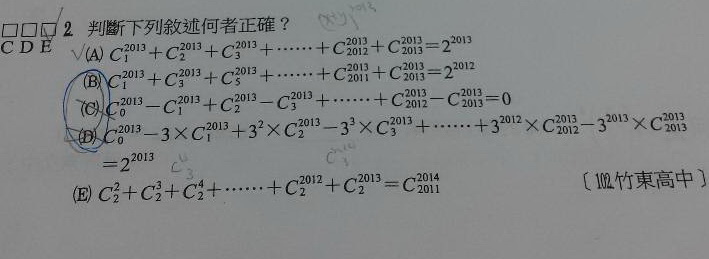 □□□ 2. 判斷下列敘述何者正確？ (x+y)^2013
C D E √(A) C_1^2013+C_2^2013+C_3^2013+⋯⋯+C_2012^2013+C_2013^2013=2^2013
(B) C_1^2013+C_3^2013+C_5^2013+⋯⋯+C_2011^2013+C_2013^2013=2^2012
(C) C_0^2013−C_1^2013+C_2^2013−C_3^2013+⋯⋯+C_2012^2013−C_2013^2013=0
(D) C_0^2013−3×C_1^2013+3^2×C_2^2013−3^3×C_3^2013+⋯⋯+3^2012×C_2012^2013−3^2013×C_2013^2013
=2^2013
(E) C_2^2+C_2^3+C_2^4+⋯⋯+C_2^2012+C_2^2013=C_2011^2014 〔102.竹東高中〕